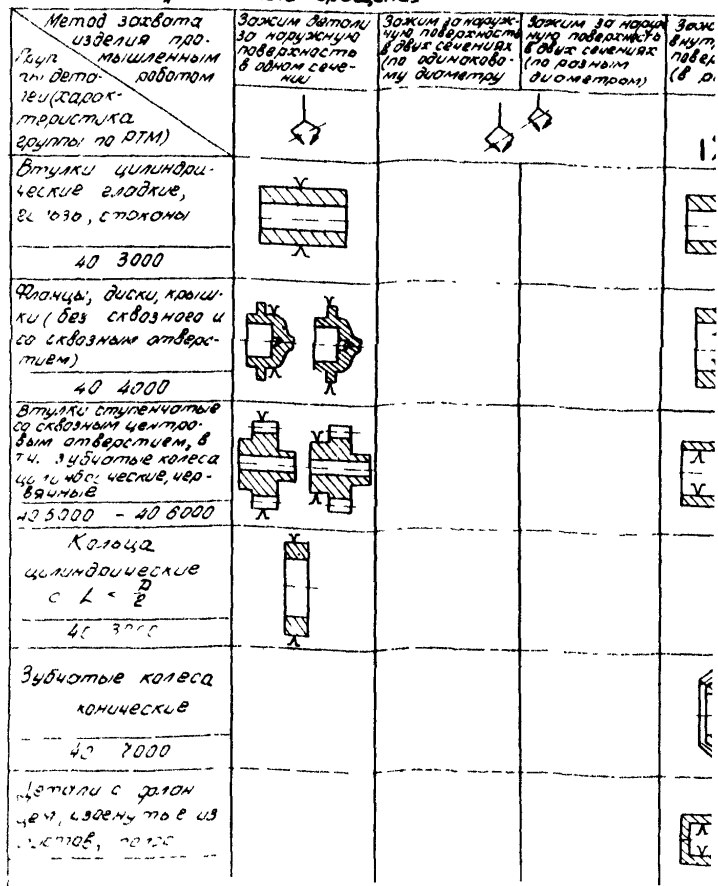 вращения
Метод захвата
изделия про-
мышленным
роботом
Груп
пы дета-
лей(харак-
теристика
группы по РТМ)
Зажим детали
за наружную
поверхность
в одном сече-
нии
Зажим за наруж-
ную поверхность
в двух сечениях
(по одинаково-
му диаметру
Зажим за наруж
ную поверхность
в двух сечениях
(по разным
диаметрам)
Заж
внут
повер
(в
Втулки цилиндри-
ческие гладкие,
стаканы
40 3000
Фланцы, диски, крыш-
ки (без сквозного и
со сквозным отверс-
тием)
40 4000
Втулки ступенчатые
со сквозным центро-
вым отверстием, в
т.ч. зубчатые колеса
цилиндрические, чер-
вячные
40 5000 - 40 6000
Кольца
цилиндрические
с L <
40
Зубчатые колеса
конические
40 7000
Детали с флан
цем, изогнутые из
листов,